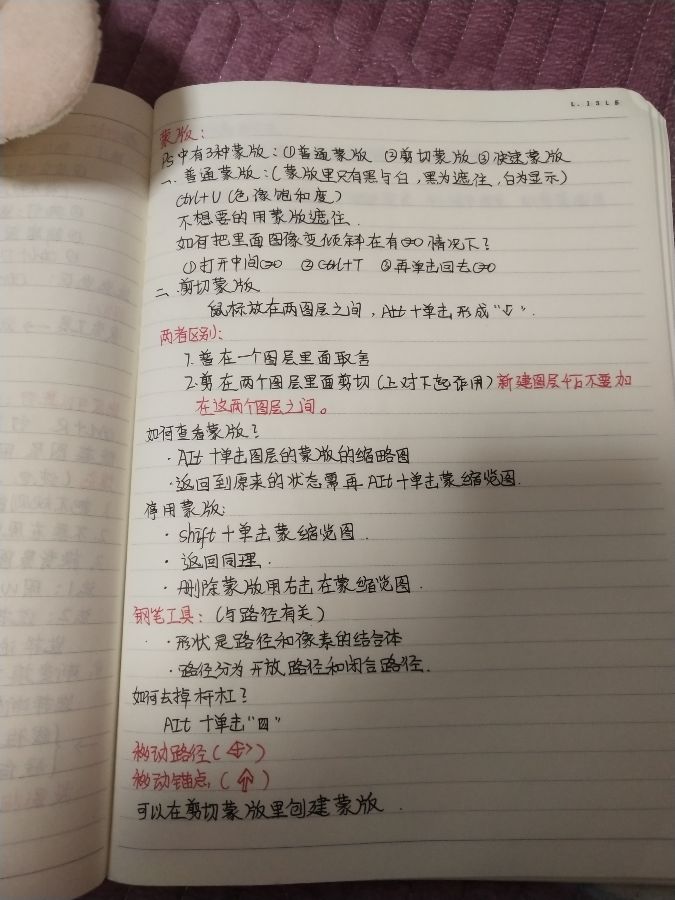 L. I S L E
蒙版:
PS中有3种蒙版:①普通蒙版 ②剪切蒙版③快速蒙版
一、普通蒙版:(蒙版里只有黑与白,黑为遮住,白为显示)
ctrl+U(色像饱和度)
不想要的用蒙版遮住.
如何把里面图像变倾斜在有情况下?
①打开中间 ②ctrl+T ③再单击回去
二、剪切蒙版
鼠标放在两图层之间,Alt+单击形成"↓".
两者区别:
1.普在一个图层里面取舍
2.剪在两个图层里面剪切(上对下起作用)新建图层千万不要加
在这两个图层之间。
如何查看蒙版?
·Alt+单击图层的蒙版的缩略图
·返回到原来的状态需再Alt+单击蒙缩览图.
停用蒙版:
·shift+单击蒙缩览图.
·返回同理.
·删除蒙版用右击在蒙缩览图.
钢笔工具:(与路径有关)
·形状是路径和像素的结合体
·路径分为开放路径和闭合路径.
如何去掉杆杠?
Alt+单击""
移动路径()
移动锚点:()
可以在剪切蒙版里创建蒙版.